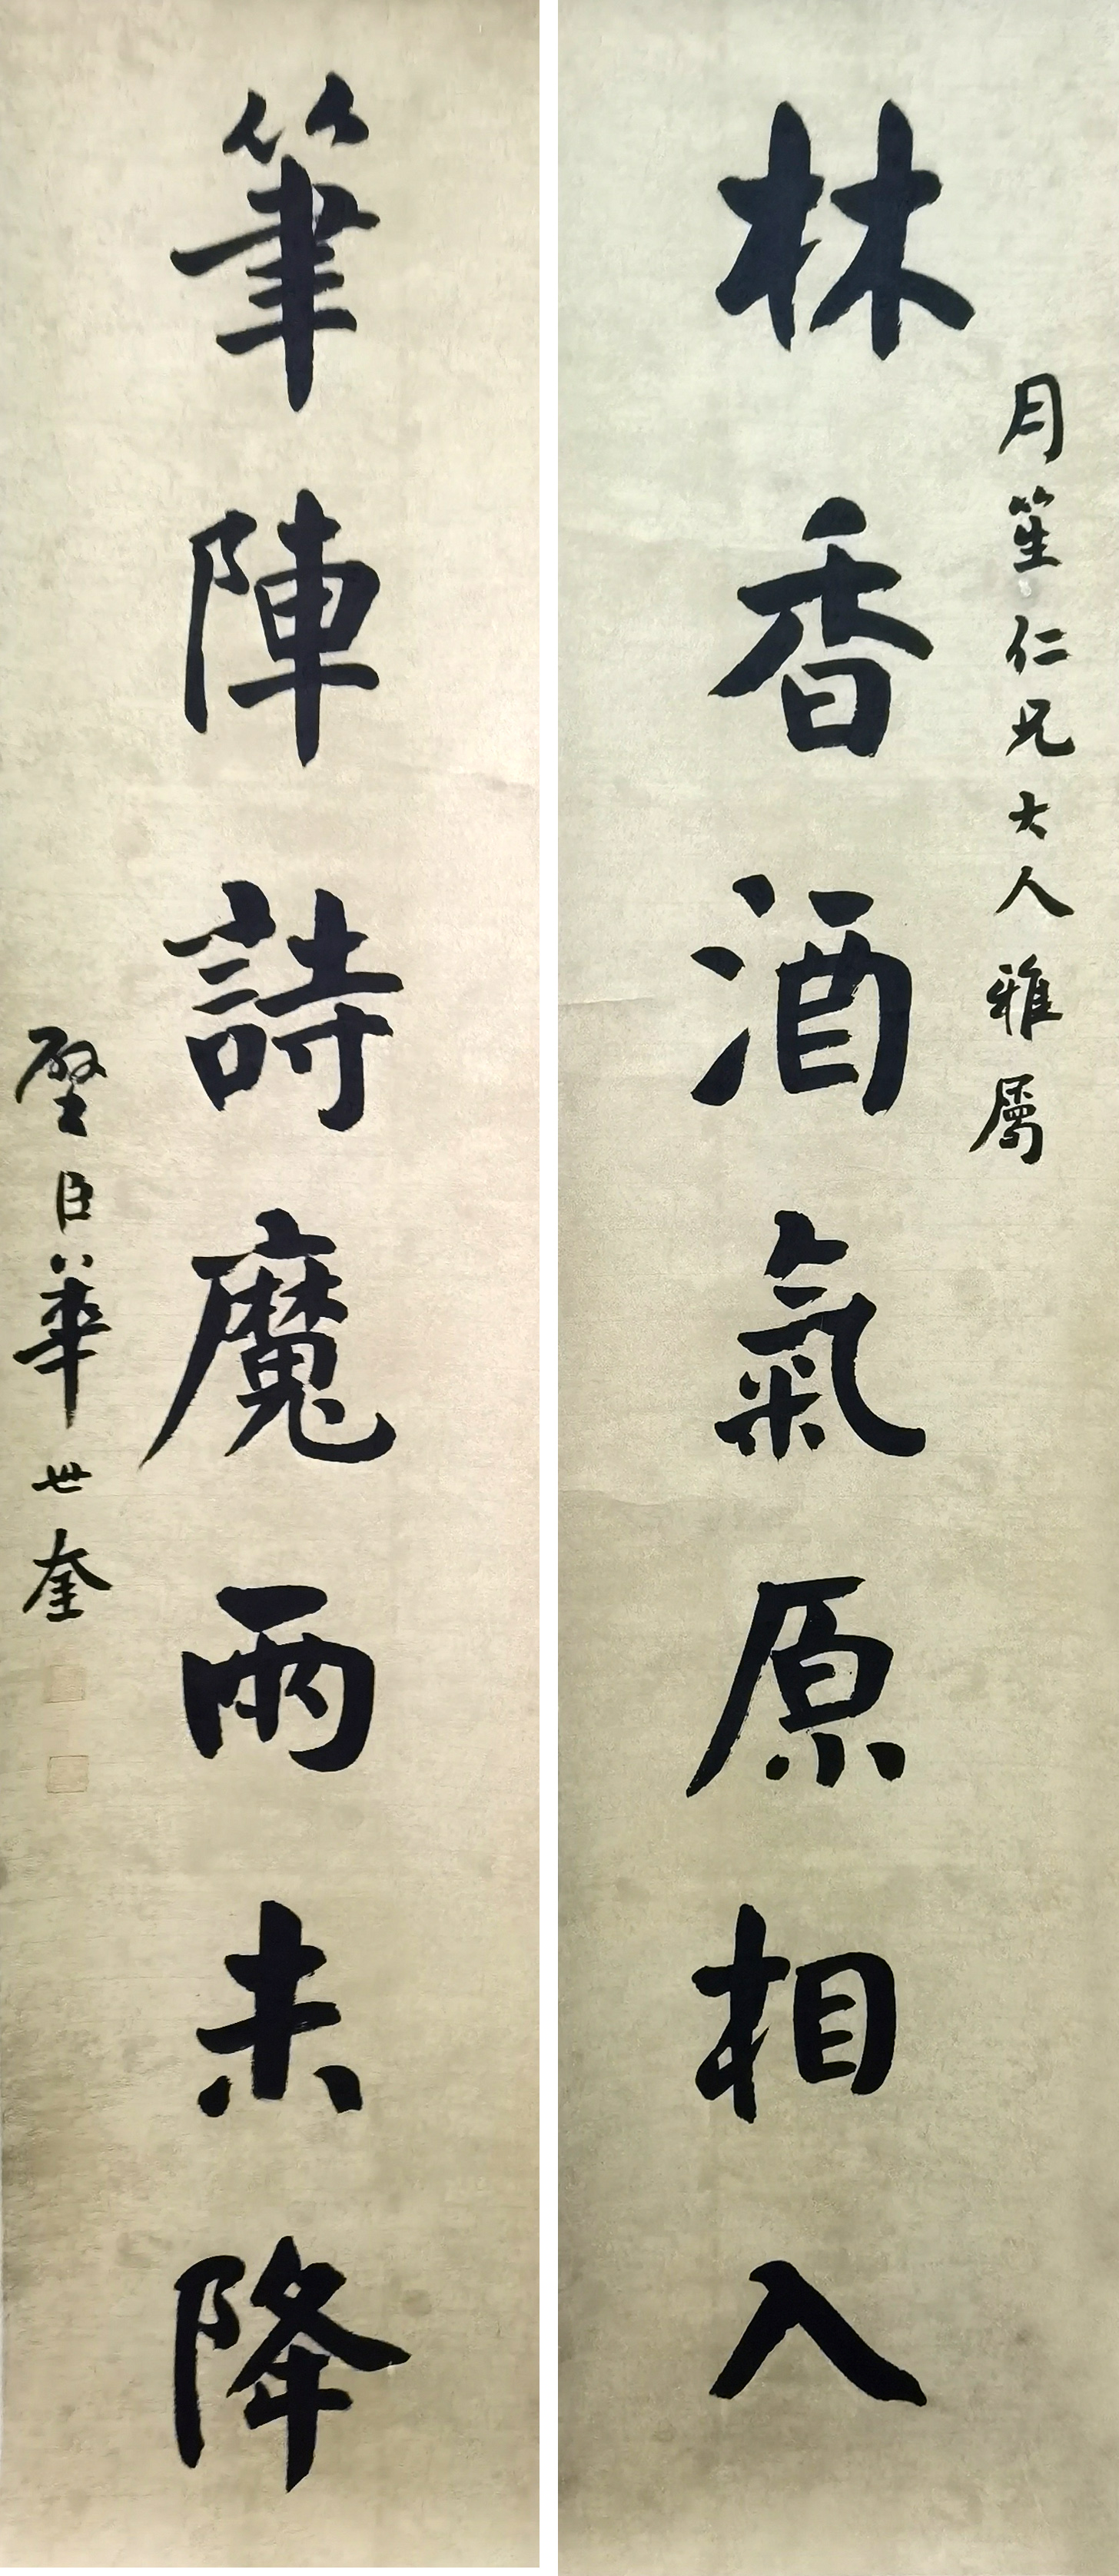 月笙仁兄大人雅屬
林香酒氣原相入
筆陣詩魔兩未降
璧臣華世奎